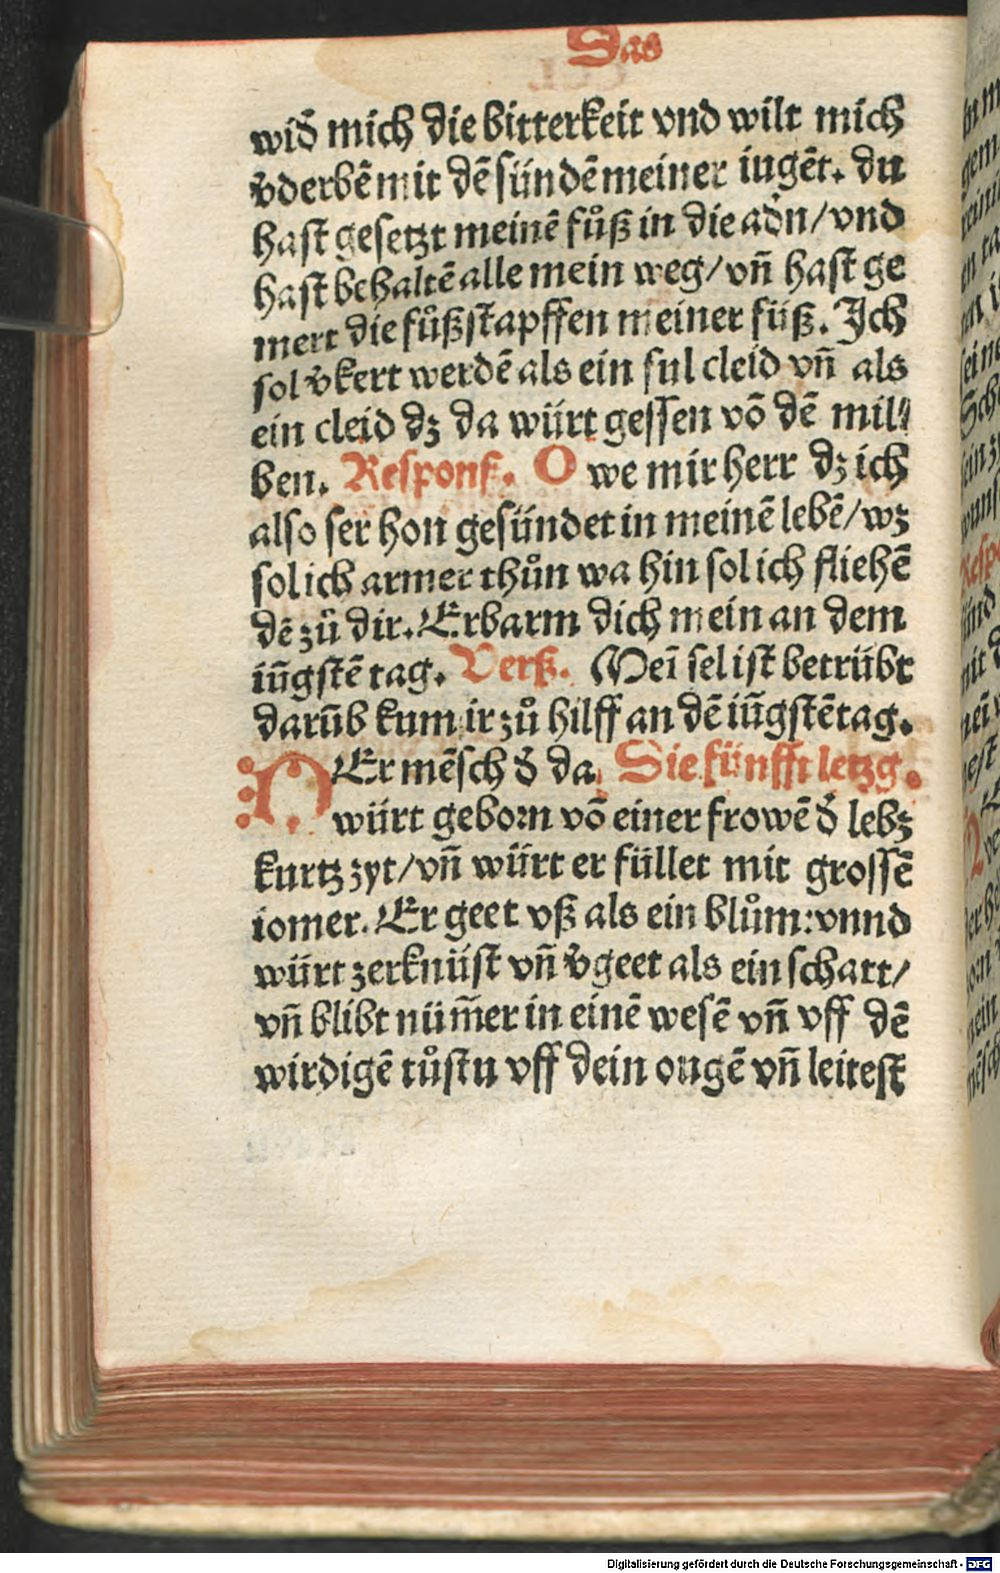 Das
wid̄ mich die bitterkeit vnd wilt mich
v̄derbē mit dē sündē meiner iugēt. du
hast gesetzt meinē fůß in die adn/vnd
hast behaltē alle mein weg/vn̄ hast ge
mert die fůßstapffen meiner füß. Ich
sol v̄kert werdē als ein ful cleid vn̄ als
ein cleid dꝫ da würt gessen vō dē mil⸗
ben. Respons. O we mir herr dꝫ ich
also ser hon gesündet in meinē lebē/wꝫ
sol ich armer thůn wa hin sol ich fliehē
dē zů dir. Erbarm dich mein an dem
iūgstē tag. Verß. Mei sel ist betrübt
darūb kum mir zů hilff an dē iūgstē tag.
DEr mēsch d̄ da Die fünfft letzg.
würt geborn vō einer frowē d̄ lebꝫ
kurtz zyt/vn̄ würt er füllet mit grossē
iomer. Er geet vß als ein blům: vnnd
würt zerknüst vn̄ v̄geet als ein schatt/
vn̄ blibt nüm̄er in einē wesē vn̄ vff dē
wirdigē tůstu vff dein ougē vn̄ leitest
Digitalisierung gefördert durch die Deutsche Forschungsgemeinschaft - DFG